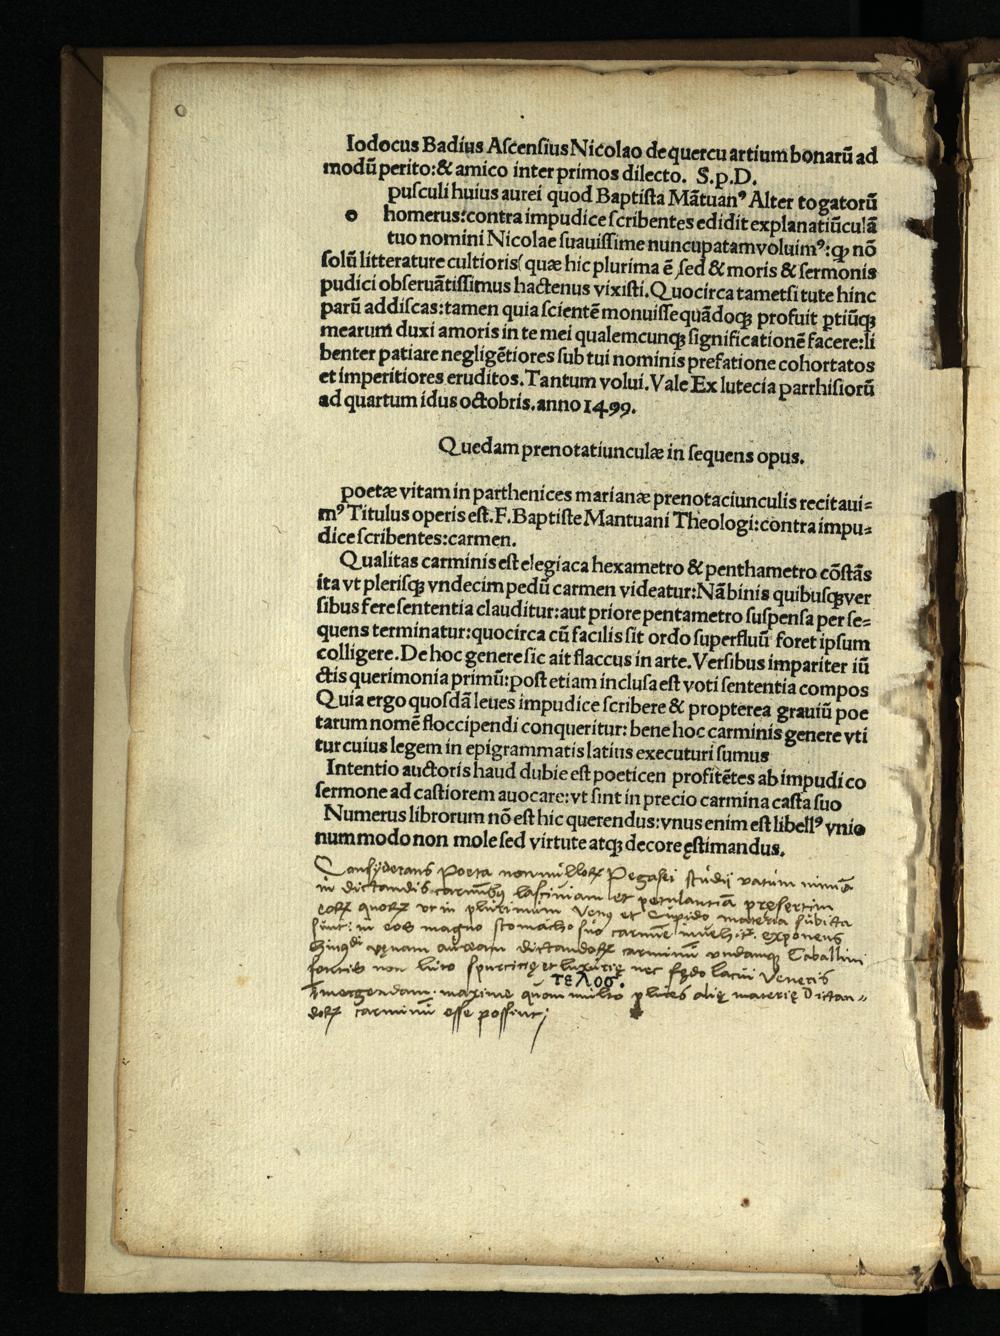 Iodocus Badius Ascensius Nicolao de quercu artium bonarū ad
modū perito:& amico inter primos dilecto. S.p.D.
pusculi huius aurei quod Baptista Mātuanꝰ Alter togatorū
o homerus:contra impudice scribentes edidit explanatiūculā
tuo nomini Nicolae suauissime nuncupatam voluimꝰ:ꝙ nō
solū litterature cultioris( quæ hic plurima ē sed & moris & sermonis
pudici obseruātissimus hactenus vixisti.Quocirca tametsi tute hinc
parū addiscas:tamen quia scientē monuisse quādoqꝫ profuit ptiūqꝫ
mearum duxi amoris in te mei qualemcunqꝫ significationē facere:li
benter patiare negligētiores sub tui nominis prefatione cohortatos
et imperitiores eruditos.Tantum volui.Vale Ex lutecia parrhisiorū
ad quartum idus octobris.anno 1499.
Quedam prenotatiunculæ in sequens opus.
poetæ vitam in parthenices marianæ prenotaciunculis recitaui=
mꝰ Titulus operis est.F.Baptiste Mantuani Theologi:contra impu=
dice scribentes:carmen.
Qualitas carminis est elegiaca hexametro & penthametro cōstās
ita vt plerisqꝫ vndecim pedū carmen videatur:Nā binis quibusqꝫ ver
sibus fere sententia clauditur:aut priore pentametro suspensa per se=
quens terminatur:quocirca cū facilis sit ordo superfluū foret ipsum
colligere.De hoc genere sic ait flaccus in arte.Versibus impariter iū
ctis querimonia primū:post etiam inclusa est voti sententia compos
Quia ergo quosdā leues impudice scribere & propterea grauiū poe
tarum nomē floccipendi conqueritur: bene hoc carminis genere vti
tur cuius legem in epigrammatis latius executuri sumus
Intentio auctoris haud dubie est poeticen profitētes ab impudico
sermone ad castiorem auocare:vt sint in precio carmina casta suo
Numerus librorum nō est hic querendus:vnus enim est libellꝰ vnio
num modo non mole sed virtute atqꝫ decore ęstimandus.
Consyderans Poeta nonnulloꝝ Pegasei studij vatum nimiā
in dictandis carminibꝰ lasciuiam et petulantiā presertim
eoꝝ quoꝝ vt in plurimum Venꝰ et Cupido materia subiecta
sunt: in eos magno stomacho suo carmine inuehit. exponens
aquam auream dictandoꝝ carminū vndamqꝫ Caballini
fontis non luto spurcitię et luxurię nec fędo lacui Veneris
τελος.
Imergendam. maxime quom multo plures alię materię Dictan=
doꝝ carminū esse possint;